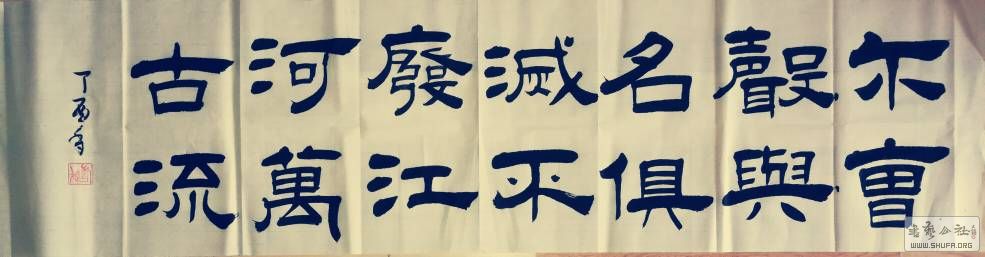 尔曹
聲與
名俱
滅不
廢江
河萬
古流
丁酉年
書藝公社
WWW.SHUFA.ORG